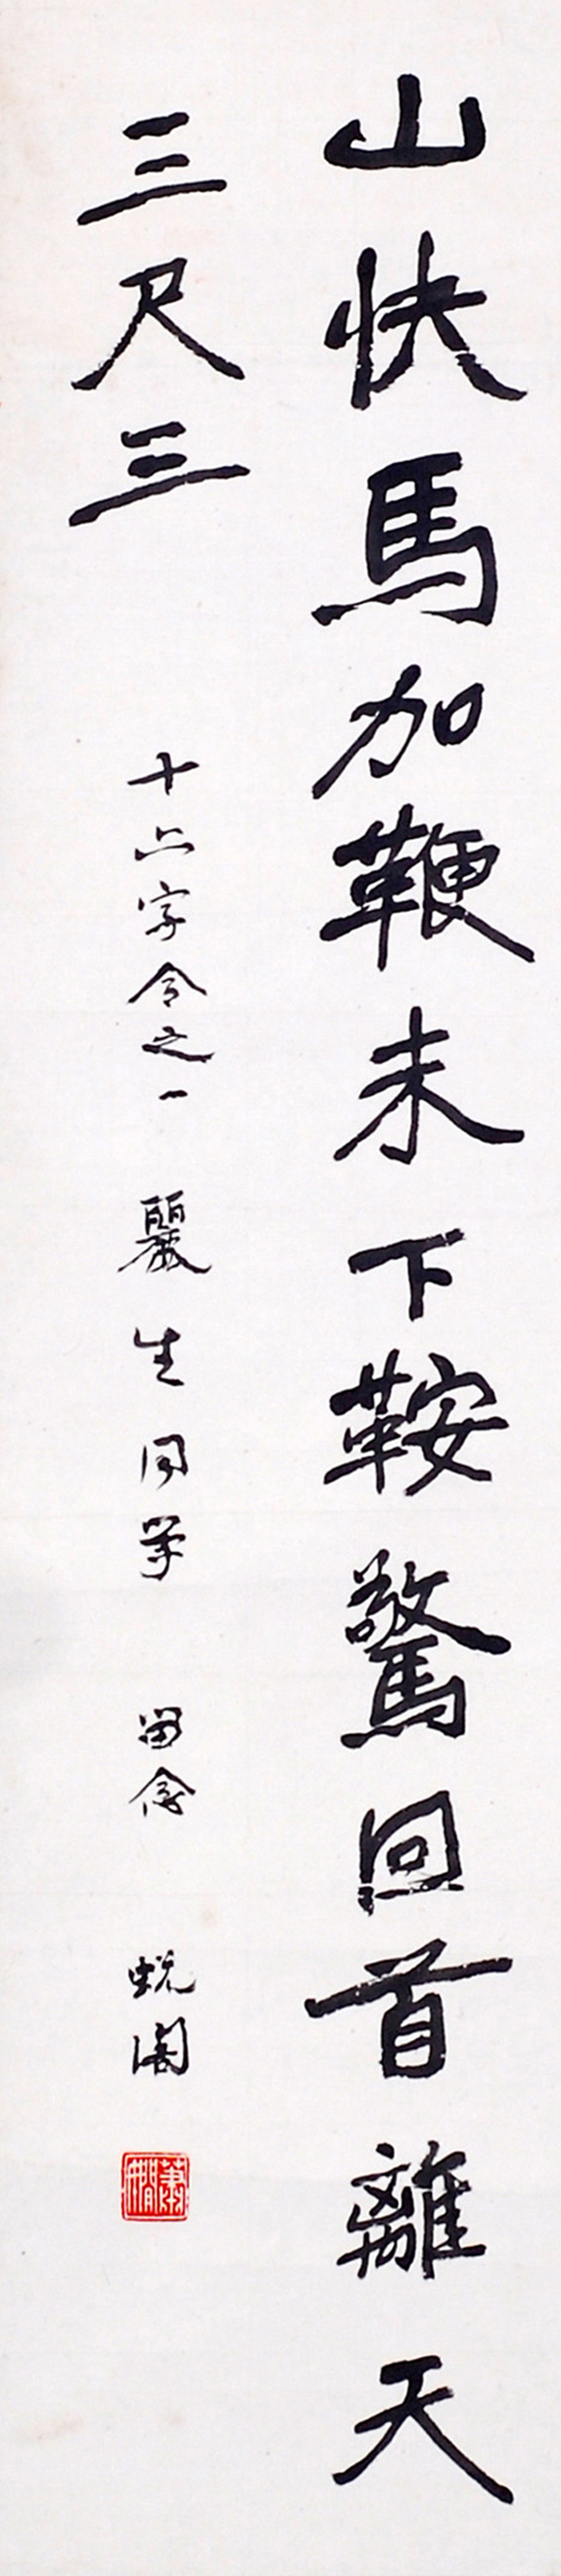 山快馬加鞭未下鞍驚回首離天
三尺三
十六字令之一 麗生同学 留念 蜕闇